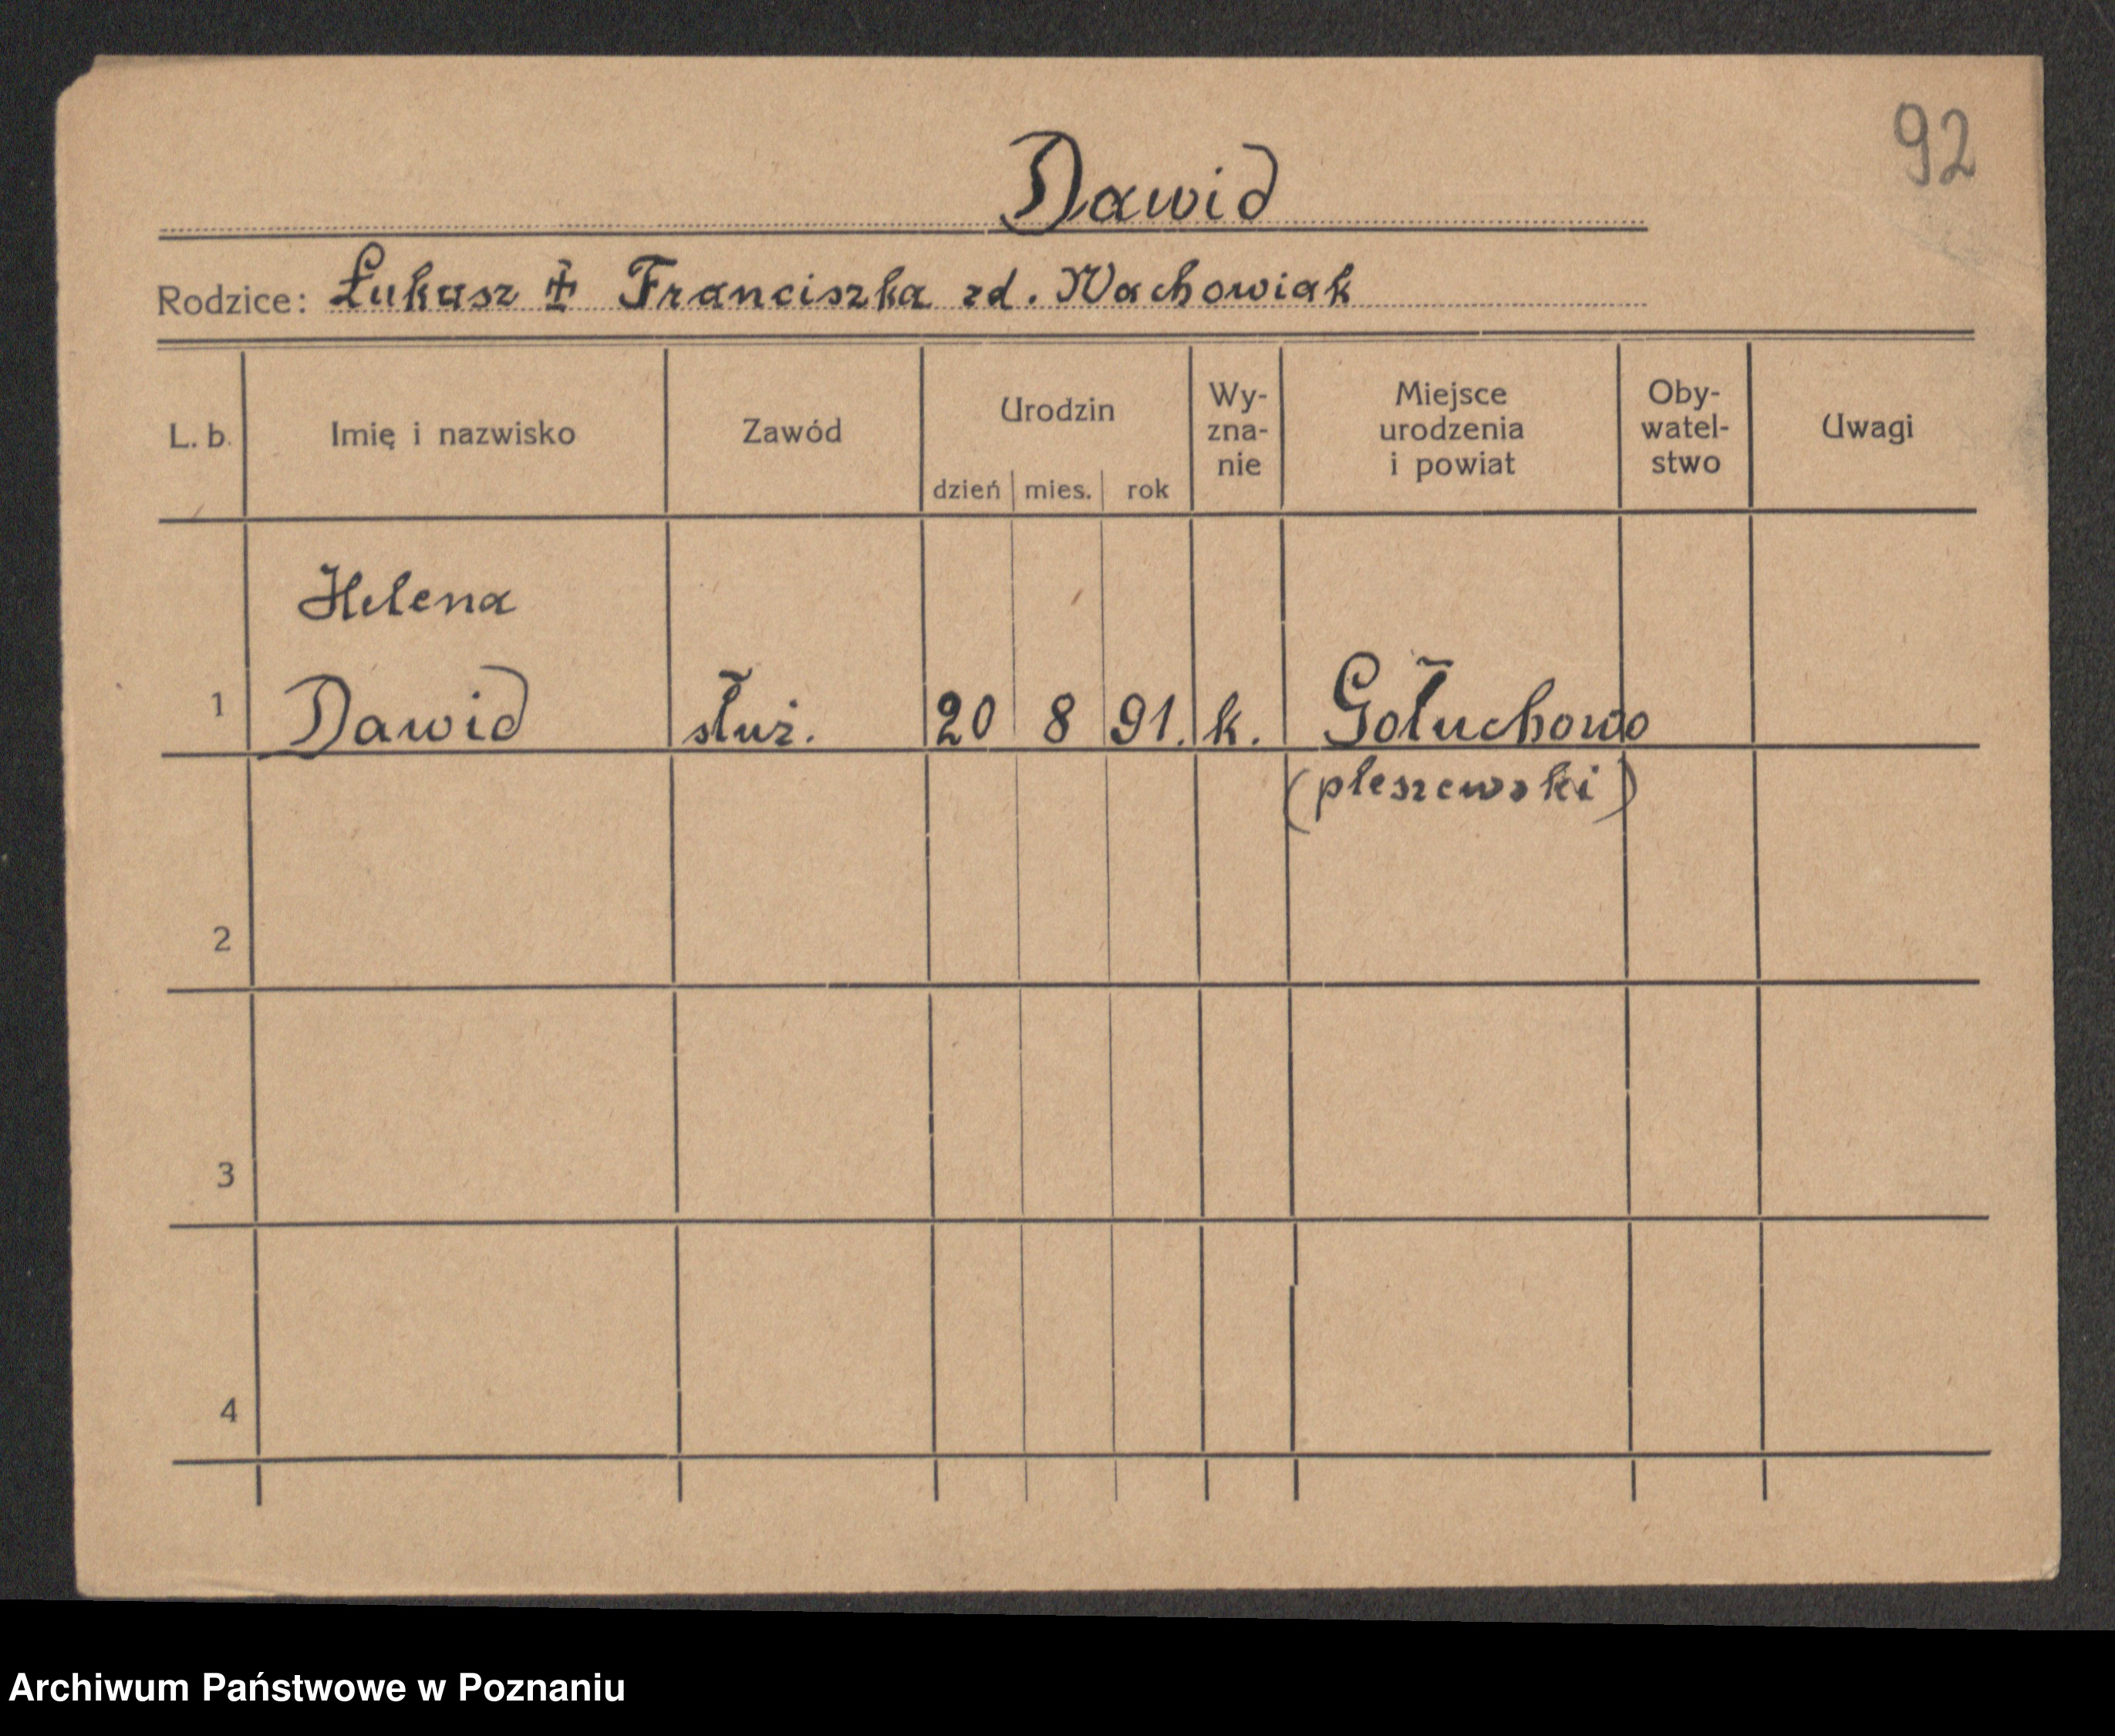 92
Dawid
Rodzice: Łukasz ‡ Franciszka zd. Wachowiak
L. b. Imię i nazwisko Zawód Urodzin dzień mies. rok Wy-zna-nie Miejsce urodzenia i powiat Oby-watel-stwo Uwagi
Helena
1 Dawid służ. 20 8 91. k. Gołuchowo
(pleszewski)
2
3
4
Archiwum Państwowe w Poznaniu